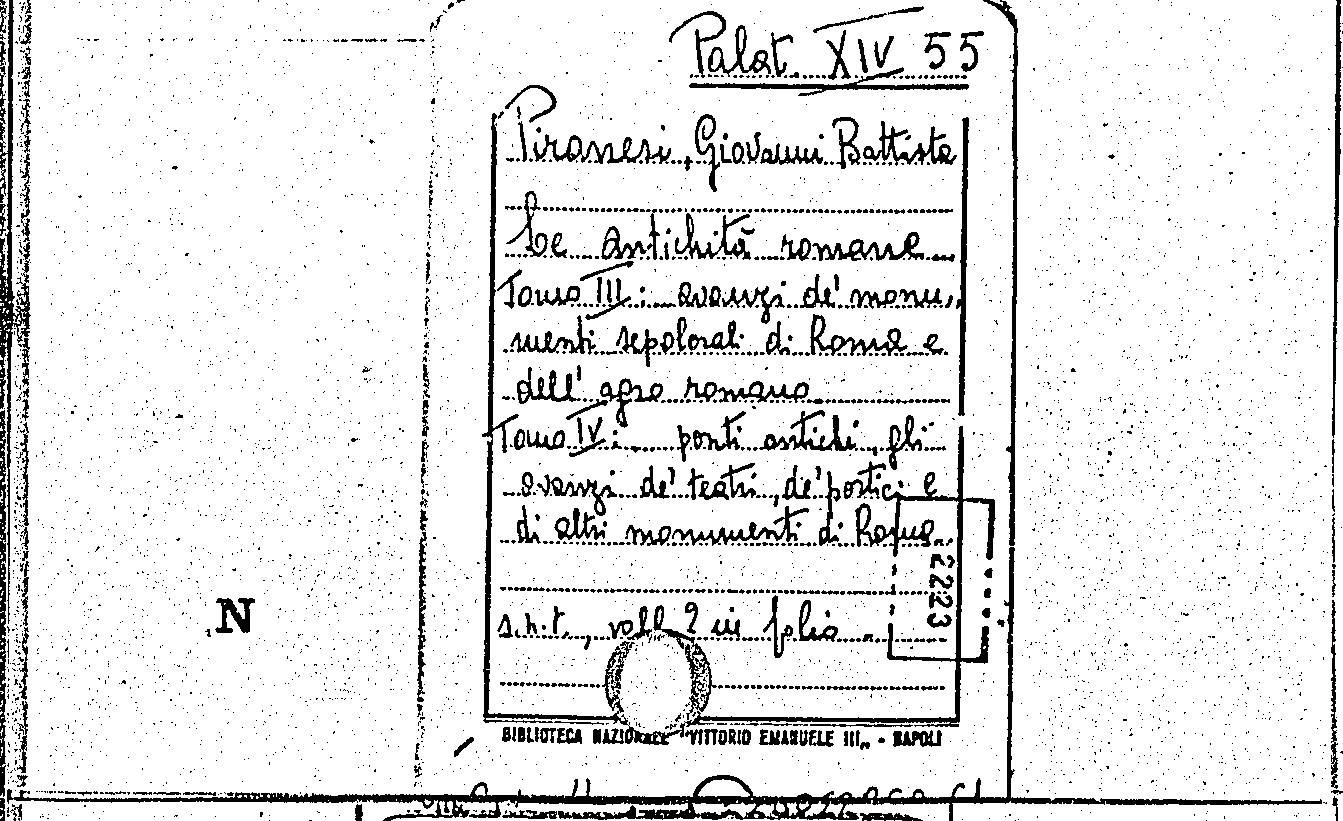 Palat. XIV 55
Piranesi, Giovanni Battista
Le antichità romane...
Tomo III: avanzi de' monu„
menti sepolcrali di Roma e
dell' agro romano.
Tomo IV: ponti antichi, gli
avanzi de' teatri, de' portici e
di altri monumenti di Roma..
2223
s.n.t., voll 2 in folio.
N
BIBLIOTECA NAZIONALE "VITTORIO EMANUELE III„ - NAPOLI